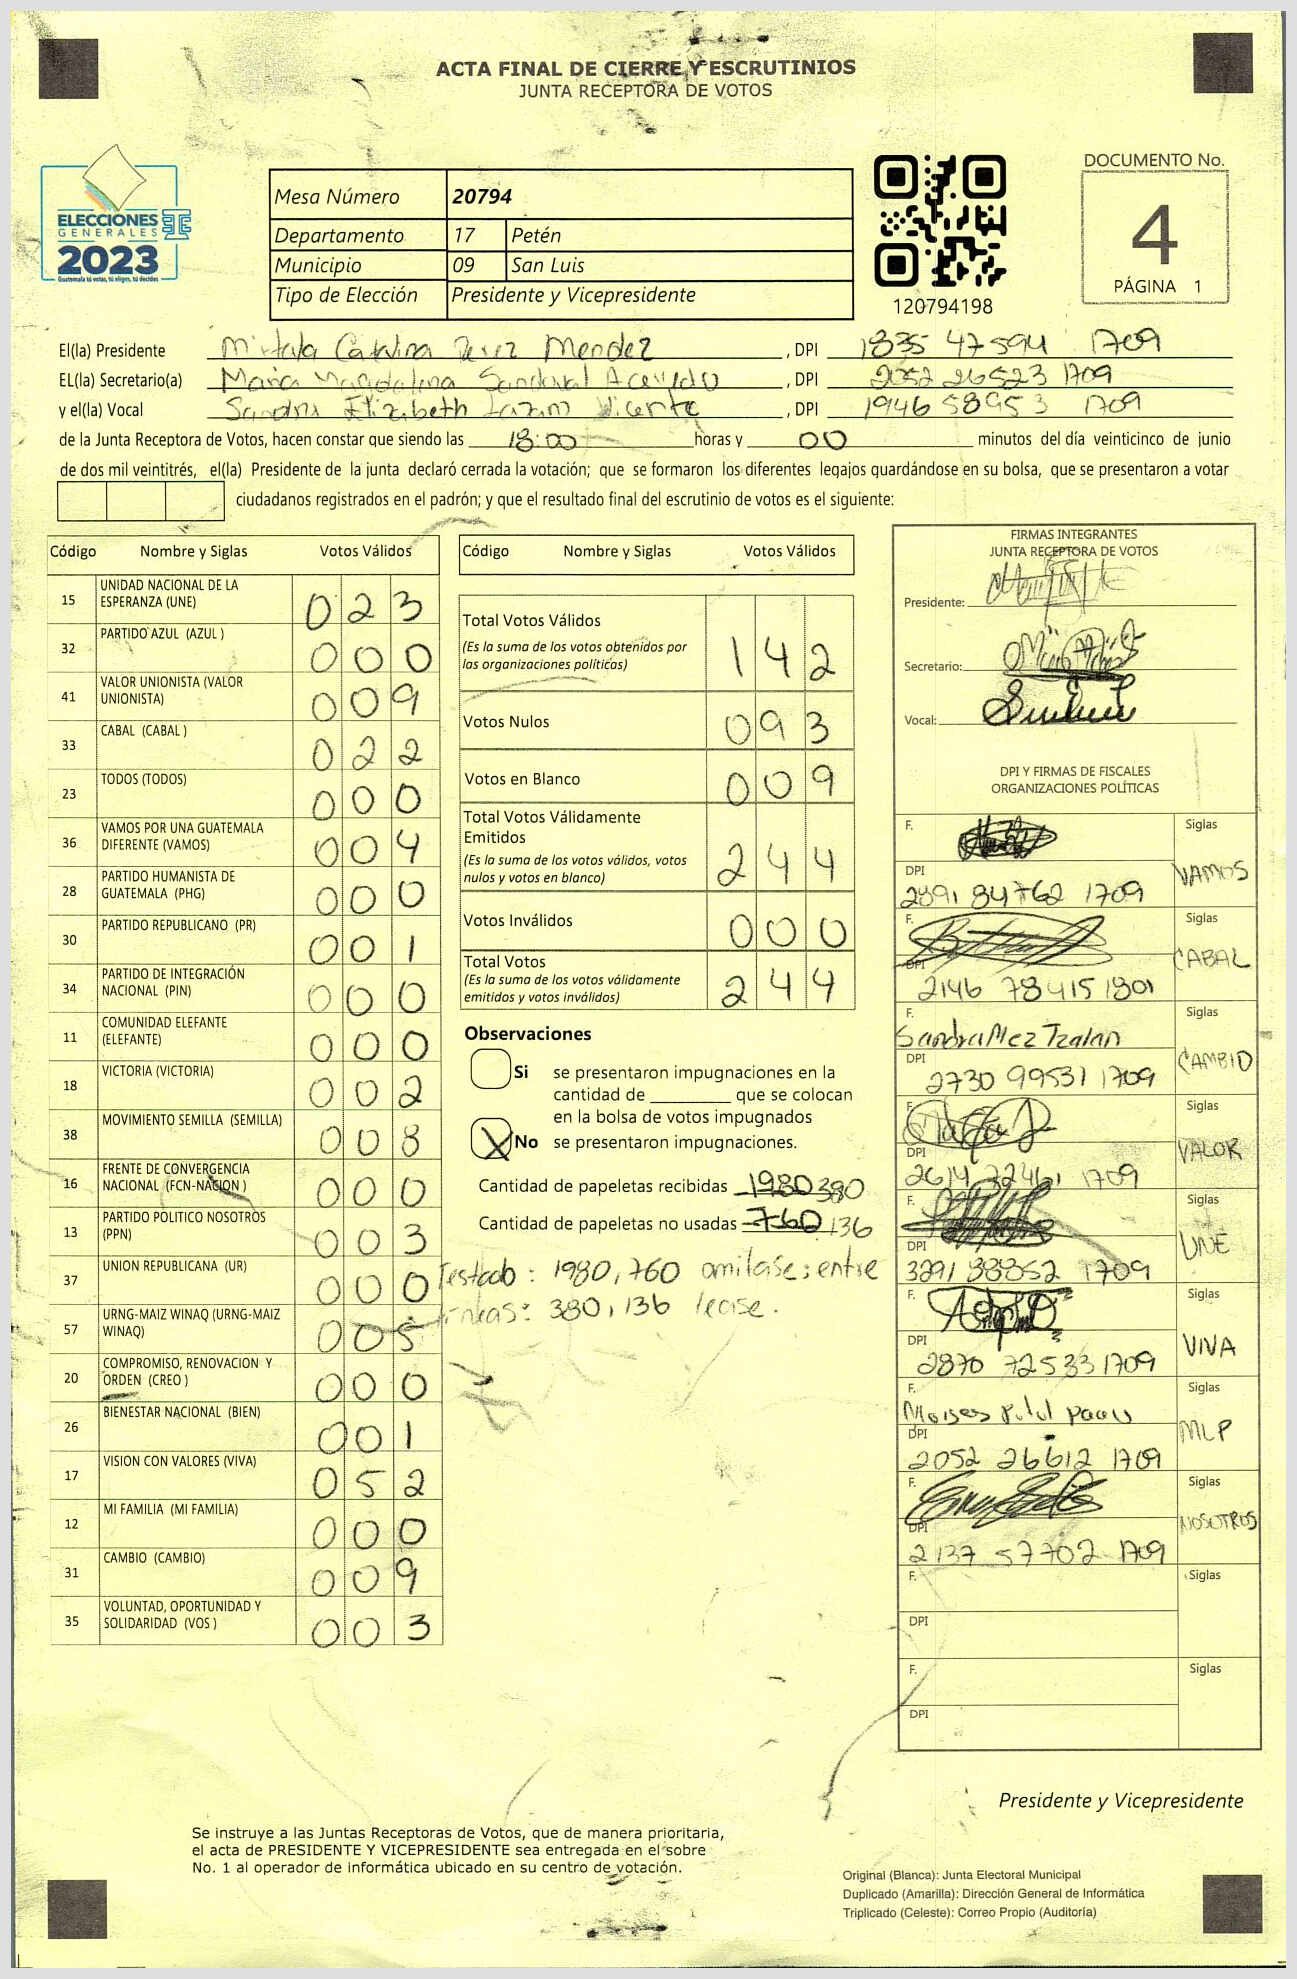 ACTA FINAL DE CIERRE Y ESCRUTINIOS
JUNTA RECEPTORA DE VOTOS
ELECCIONES
GENERALES
2023
Guatemala tú votas, tú eliges, tú decides
Mesa Número 20794
Departamento 17 Petén
Municipio 09 San Luis
Tipo de Elección Presidente y Vicepresidente
120794198
DOCUMENTO No.
4
PÁGINA 1
El(la) Presidente Mirtala Catarina Perez Mendez , DPI 1835 47594 1709
EL(la) Secretario(a) Maria Magdalena Sandoval Acevedo , DPI 2052 26523 1709
y el(la) Vocal Sandra Elizabeth Lazaro Vicente , DPI 1946 58953 1709
de la Junta Receptora de Votos, hacen constar que siendo las 18:00 horas y 00 minutos del día veinticinco de junio
de dos mil veintitrés, el(la) Presidente de la junta declaró cerrada la votación; que se formaron los diferentes legajos guardándose en su bolsa, que se presentaron a votar
ciudadanos registrados en el padrón; y que el resultado final del escrutinio de votos es el siguiente:
Código Nombre y Siglas Votos Válidos
15 UNIDAD NACIONAL DE LA ESPERANZA (UNE) 023
32 PARTIDO AZUL (AZUL ) 000
41 VALOR UNIONISTA (VALOR UNIONISTA) 009
33 CABAL (CABAL ) 022
23 TODOS (TODOS) 000
36 VAMOS POR UNA GUATEMALA DIFERENTE (VAMOS) 004
28 PARTIDO HUMANISTA DE GUATEMALA (PHG) 000
30 PARTIDO REPUBLICANO (PR) 001
34 PARTIDO DE INTEGRACIÓN NACIONAL (PIN) 000
11 COMUNIDAD ELEFANTE (ELEFANTE) 000
18 VICTORIA (VICTORIA) 002
38 MOVIMIENTO SEMILLA (SEMILLA) 008
16 FRENTE DE CONVERGENCIA NACIONAL (FCN-NACION ) 000
13 PARTIDO POLITICO NOSOTROS (PPN) 003
37 UNION REPUBLICANA (UR) 000
57 URNG-MAIZ WINAQ (URNG-MAIZ WINAQ) 005
20 COMPROMISO, RENOVACION Y ORDEN (CREO ) 000
26 BIENESTAR NACIONAL (BIEN) 001
17 VISION CON VALORES (VIVA) 052
12 MI FAMILIA (MI FAMILIA) 000
31 CAMBIO (CAMBIO) 009
35 VOLUNTAD, OPORTUNIDAD Y SOLIDARIDAD (VOS ) 003
Código Nombre y Siglas Votos Válidos
Total Votos Válidos 142
(Es la suma de los votos obtenidos por
las organizaciones políticas)
Votos Nulos 093
Votos en Blanco 009
Total Votos Válidamente
Emitidos 244
(Es la suma de los votos válidos, votos
nulos y votos en blanco)
Votos Inválidos 000
Total Votos 244
(Es la suma de los votos válidamente
emitidos y votos inválidos)
Observaciones
Si se presentaron impugnaciones en la
cantidad de ________ que se colocan
en la bolsa de votos impugnados
X No se presentaron impugnaciones.
Cantidad de papeletas recibidas 1980 380
Cantidad de papeletas no usadas 760 136
Testado: 1980, 760 omitase; entre
lineas: 380, 136 lease.
FIRMAS INTEGRANTES
JUNTA RECEPTORA DE VOTOS
Presidente:
Secretario:
Vocal:
DPI Y FIRMAS DE FISCALES
ORGANIZACIONES POLÍTICAS
F. Siglas VAMOS
DPI 2891 84762 1709
F. Siglas CABAL
DPI 2146 78415 1801
F. Sandra Mez Tzalan Siglas CAMBIO
DPI 2730 99531 1709
F. Siglas VALOR
DPI 2614 22461 1709
F. Siglas UNE
DPI 3291 88852 1709
F. Siglas VIVA
DPI 2870 72533 1709
F. Moises Siglas MLP
DPI 2052 26612 1709
F. Siglas NOSOTROS
DPI 2137 57702 1709
F. Siglas
DPI
F. Siglas
DPI
Presidente y Vicepresidente
Se instruye a las Juntas Receptoras de Votos, que de manera prioritaria,
el acta de PRESIDENTE Y VICEPRESIDENTE sea entregada en el sobre
No. 1 al operador de informática ubicado en su centro de votación.
Original (Blanca): Junta Electoral Municipal
Duplicado (Amarilla): Dirección General de Informática
Triplicado (Celeste): Correo Propio (Auditoría)